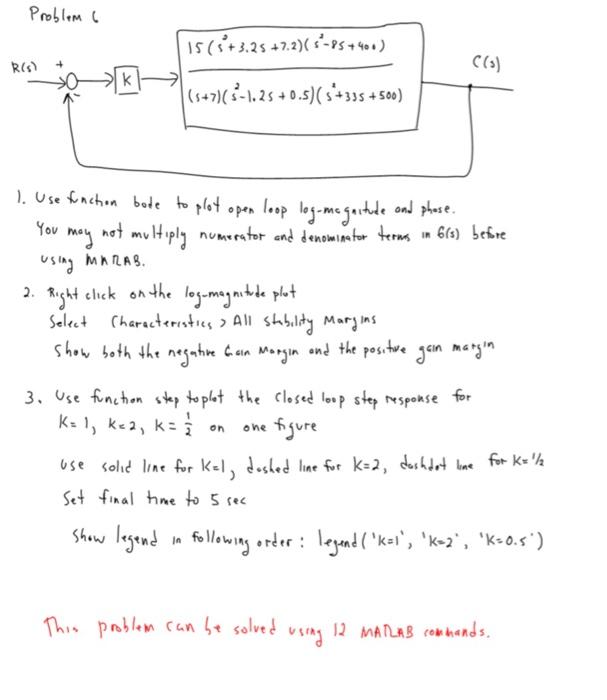 Problem 6
15 (s²+3.2s +7.2)(s²-8s+400)
R(s) + K C(s)
(s+7)(s²-1.2s +0.5)(s²+33s +500)
-
1. Use function bode to plot open loop log-magnitude and phase.
You may not multiply numerator and denominator terms in G(s) before
using MATLAB.
2. Right click on the log-magnitude plot
Select Characteristics > All Stability Margins
Show both the negative Gain Margin and the positive gain margin
3. Use function step to plot the closed loop step response for
K=1, K=2, K=½ on one figure
Use solid line for K=1, dashed line for K=2, dashdot line for K=1/2
Set final time to 5 sec
Show legend in following order: legend('K=1', 'K=2', 'K=0.5')
This problem can be solved using 12 MATLAB commands.